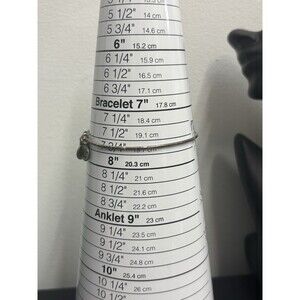 5 1/2" 14 cm
5 3/4" 14.6 cm
6" 15.2 cm
6 1/4" 15.9 cm
6 1/2" 16.5 cm
6 3/4" 17.1 cm
Bracelet 7" 17.8 cm
7 1/4" 18.4 cm
7 1/2" 19.1 cm
8" 20.3 cm
8 1/4" 21 cm
8 1/2" 21.6 cm
8 3/4" 22.2 cm
Anklet 9" 23 cm
9 1/4" 23.5 cm
9 1/2" 24.1 cm
9 3/4" 24.8 cm
10" 25.4 cm
10 1/4" 26 cm
10 1/2"